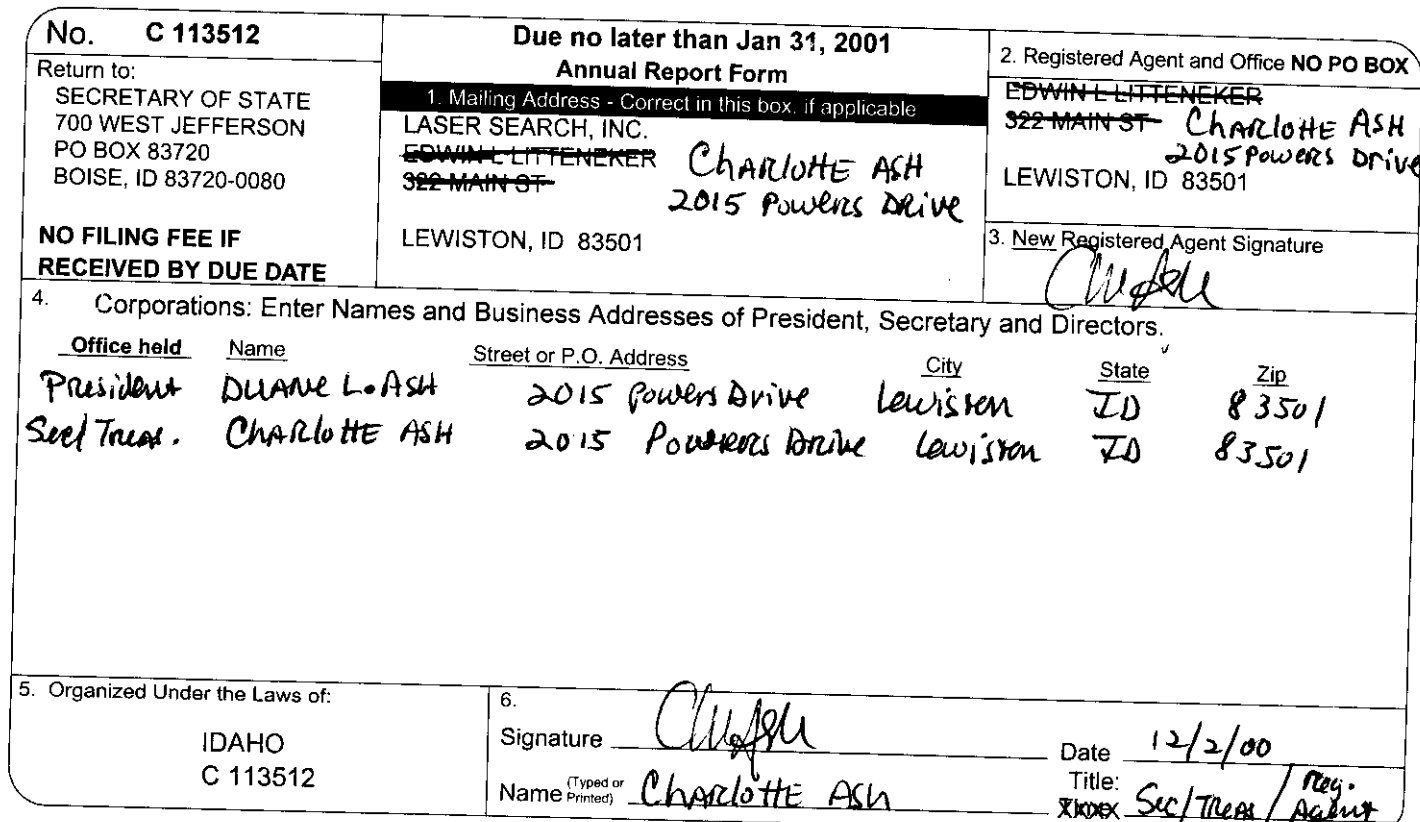 No. C 113512
Return to:
SECRETARY OF STATE
700 WEST JEFFERSON
PO BOX 83720
BOISE, ID 83720-0080
NO FILING FEE IF
RECEIVED BY DUE DATE
Due no later than Jan 31, 2001
Annual Report Form
1. Mailing Address - Correct in this box, if applicable
LASER SEARCH, INC.
EDWIN L LITTENEKER CHARLOTTE ASH
322 MAIN ST 2015 POWERS DRIVE
LEWISTON, ID 83501
2. Registered Agent and Office NO PO BOX
EDWIN L LITTENEKER
322 MAIN ST CHARLOTTE ASH
2015 POWERS DRIVE
LEWISTON, ID 83501
3. New Registered Agent Signature
4. Corporations: Enter Names and Business Addresses of President, Secretary and Directors.
Office held Name Street or P.O. Address City State Zip
President DUANE L. ASH 2015 Powers Drive Lewiston ID 83501
Sec/Treas. CHARLOTTE ASH 2015 Drive Lewiston ID 83501
5. Organized Under the Laws of:
IDAHO
C 113512
6.
Signature
Date 12/2/00
Name (Typed or Printed) CHARLOTTE ASH
Title: Sec/Treas / Reg. Agent